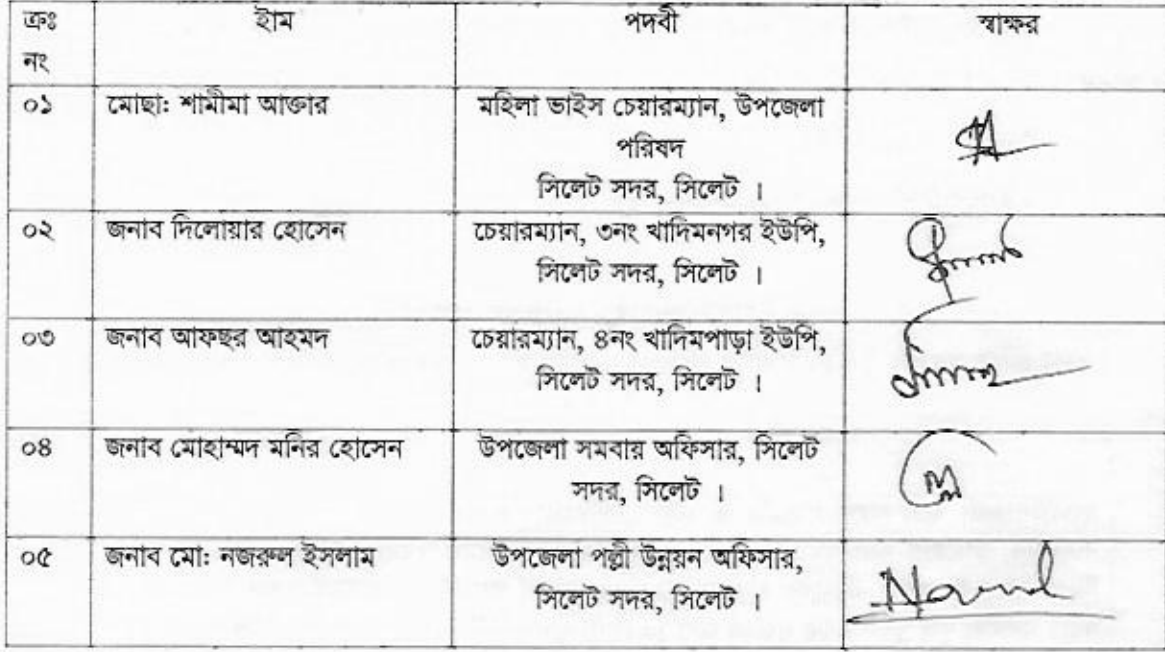 ক্রঃ নং ইাম পদবী স্বাক্ষর
০১ মোছা: শামীমা আক্তার মহিলা ভাইস চেয়ারম্যান, উপজেলা
পরিষদ
সিলেট সদর, সিলেট ।
০২ জনাব দিলোয়ার হোসেন চেয়ারম্যান, ৩নং খাদিমনগর ইউপি,
সিলেট সদর, সিলেট ।
০৩ জনাব আফছর আহমদ চেয়ারম্যান, ৪নং খাদিমপাড়া ইউপি,
সিলেট সদর, সিলেট ।
০৪ জনাব মোহাম্মদ মনির হোসেন উপজেলা সমবায় অফিসার, সিলেট
সদর, সিলেট ।
০৫ জনাব মো: নজরুল ইসলাম উপজেলা পল্লী উন্নয়ন অফিসার,
সিলেট সদর, সিলেট ।